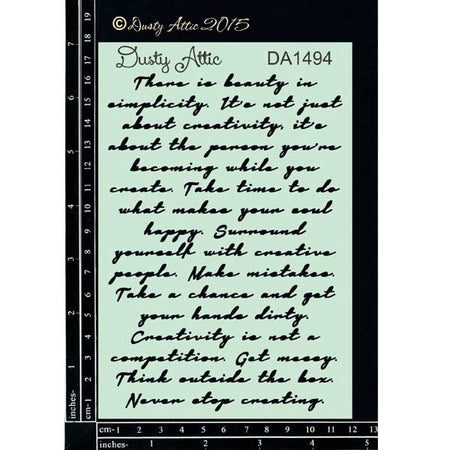 ©Dusty Attic 2015
Dusty Attic DA1494
There is beauty in
simplicity. It's not just
about creativity, it's
about the person you're
becoming while you
create. Take time to do
what makes your soul
happy. Surround
yourself with creative
people. Make mistakes.
Take a chance and get
your hands dirty.
Creativity is not a
competition. Get messy.
Think outside the box.
Never stop creating.
inches- 1 2 3 4 5 6 7
cm-1 2 3 4 5 6 7 8 9 10 11 12 13 14 15 16 17 18 19
cm-1 2 3 4 5 6 7 8 9 10 11 12 13
inches- 1 2 3 4 5